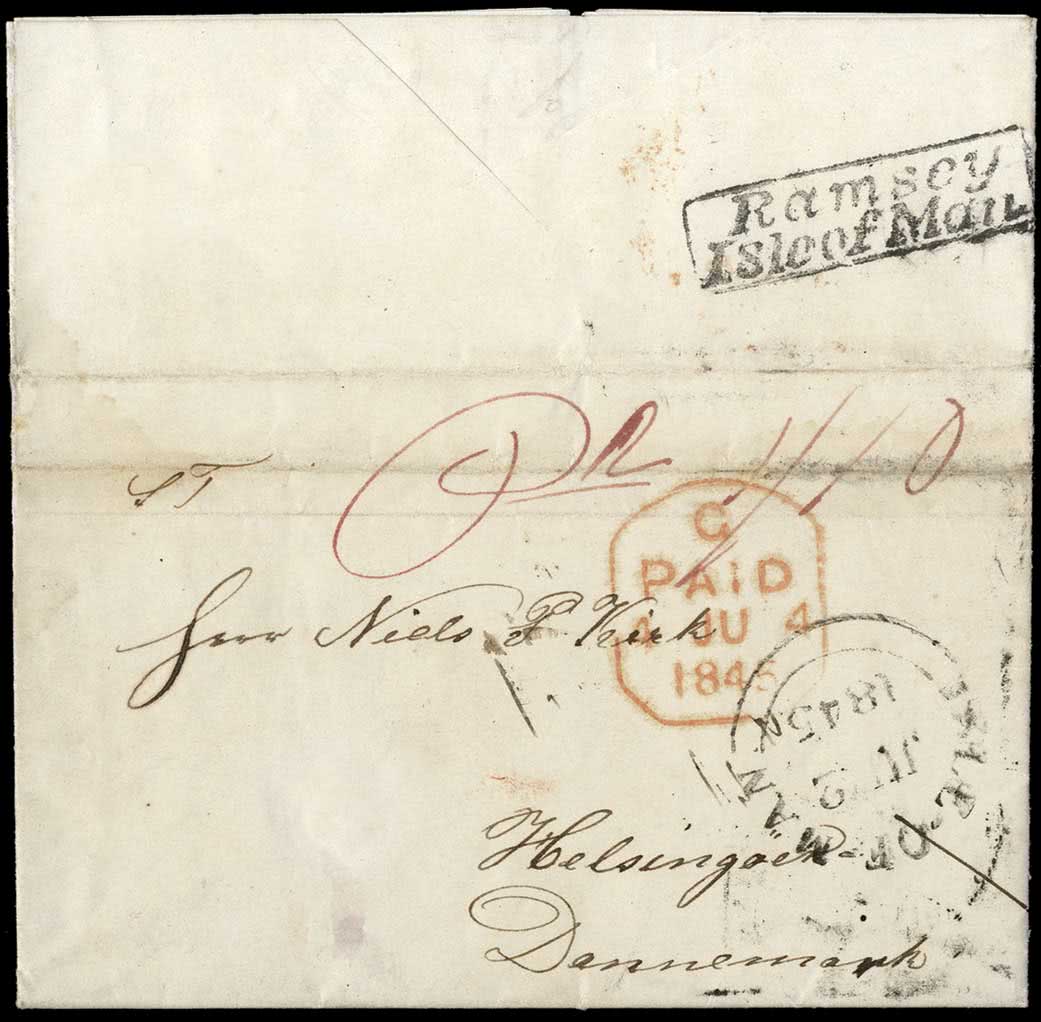 Ramsey
Isle of Man
Pd 1/10
ST
C
PAID
4 JU 4
1845
Herr Niels P Kirk
ISLE OF MAN
JU 2
1845
Helsingöer
Dannemark